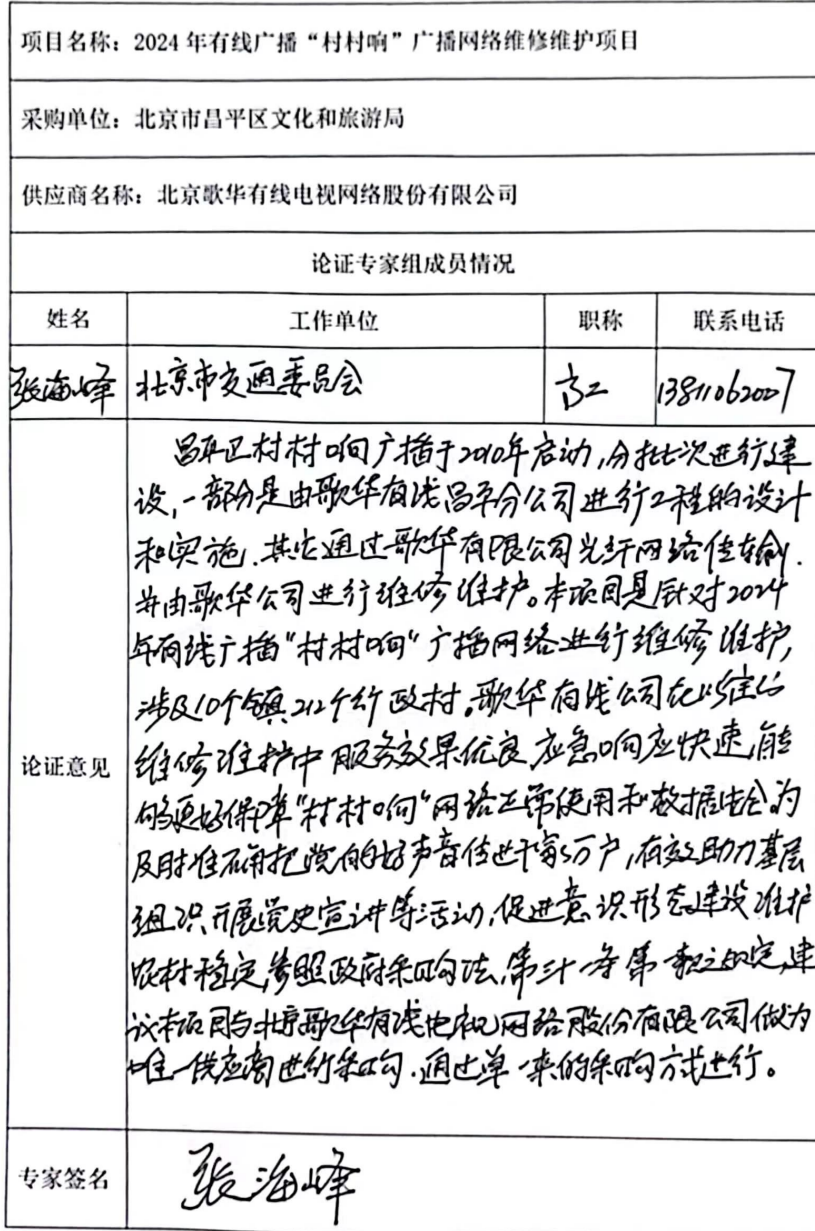 项目名称：2024 年有线广播“村村响”广播网络维修维护项目
采购单位：北京市昌平区文化和旅游局
供应商名称：北京歌华有线电视网络股份有限公司
论证专家组成员情况
姓名 工作单位 职称 联系电话
张海峰 北京市交通委员会 高工 13811062007
论证意见
昌平区村村响广播于2010年启动,分批次进行建
设,一部分是由歌华有线昌平分公司进行工程的设计
和实施.其它通过歌华有限公司光纤网络传输.
并由歌华公司进行维修维护。本项目是针对2024
年有线广播“村村响”广播网络进行维修维护,
涉及10个镇212个行政村。歌华有线公司在以往的
维修维护中服务效果优良,应急响应快速,能
够更好保障“村村响”网络正常使用和数据安全,为
及时准确把党的好声音传进千家万户,有效助力基层
组织开展党史宣讲等活动,促进意识形态建设维护
农村稳定,参照政府采购法,第三十一条第一款之规定,建
议本项目与北京歌华有线电视网络股份有限公司做为
唯一供应商进行采购.通过单一来的采购方式进行。
专家签名 张海峰